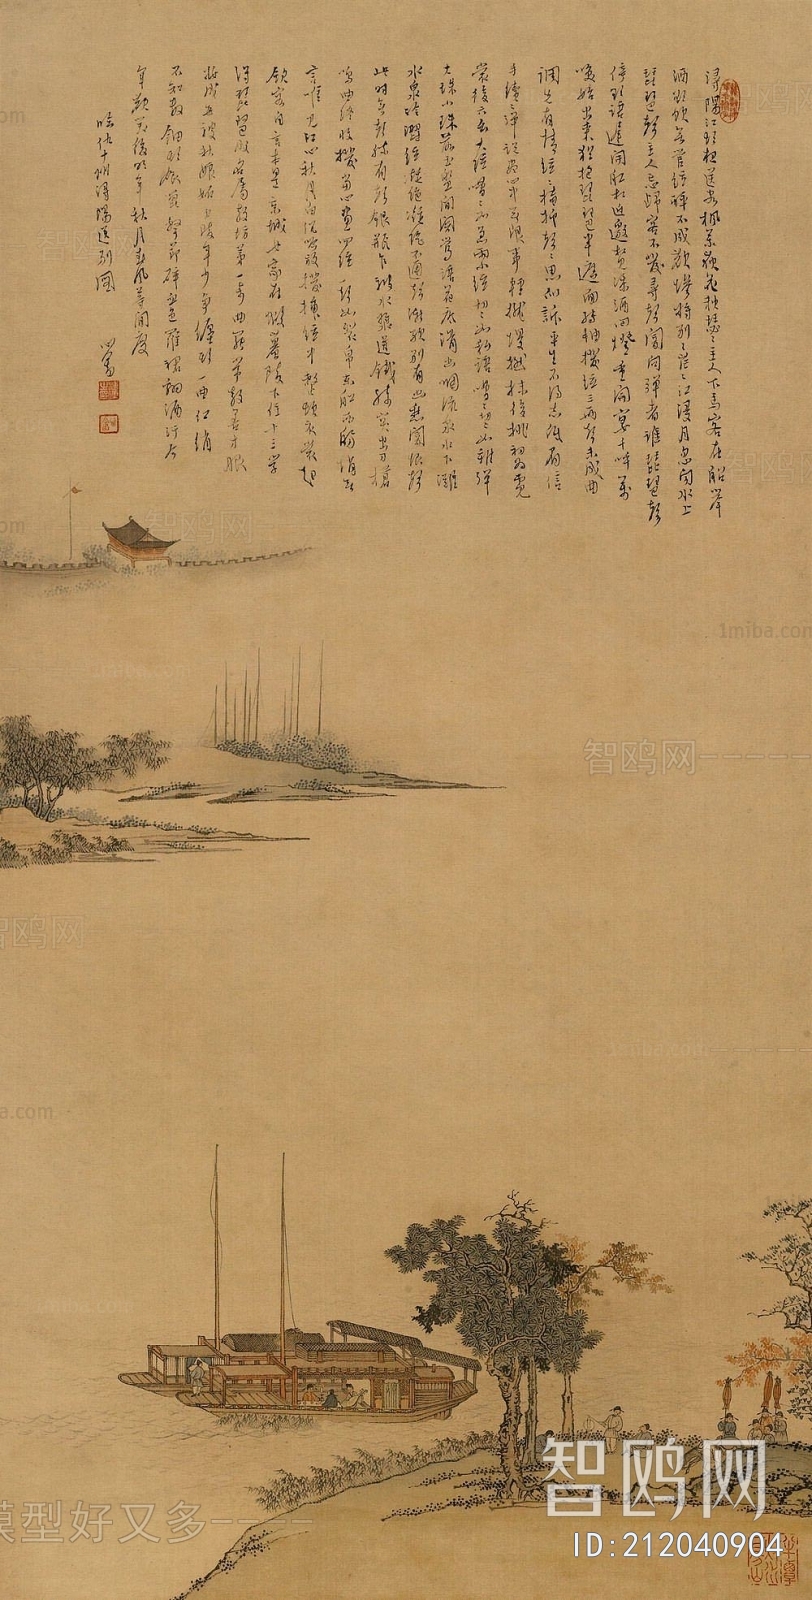 潯陽江頭夜送客楓葉荻花秋瑟〻主人下馬客在船舉
酒欲飲無管絃醉不成歡慘將別〻茫〻江浸月忽聞水上
琵琶聲主人忘歸客不發尋聲闇問彈者誰琵琶聲
停欲語遲移船相近邀相見添酒回燈重開宴千呼萬
喚始出來猶抱琵琶半遮面轉軸撥絃三兩聲未成曲
調先有情絃〻掩抑聲〻思似訴平生不得志低眉信
手續〻彈說盡心中無限事輕攏慢撚抹復挑初為霓
裳後六幺大絃嘈〻如急雨小絃切〻如私語嘈〻切〻雜彈
大珠小珠落玉盤間關鶯語花底滑幽咽流泉水下灘
水泉冷澀絃凝絕凝絕不通聲漸歇別有幽愁闇恨聲
此時無聲勝有聲銀瓶乍破水漿迸鐵騎突出刀槍
鳴曲終收撥當心畫四絃一聲如裂帛東舡西舫悄無
言唯見江心秋月白沉吟放撥插絃中整頓衣裳起
斂容自言本是京城女家在蝦蟇陵下住十三學
得琵琶成名屬教坊第一部曲罷常教善才服
妝成每被秋娘妬五陵年少爭纏頭一曲紅綃
不知數鈿頭銀篦擊節碎血色羅裙翻酒污今
年歡笑復明年秋月春風等閒度
臨仇十洲潯陽送別圖
心畬
智鸥网
1miba.com
模型好又多
智鸥网
ID:212040904